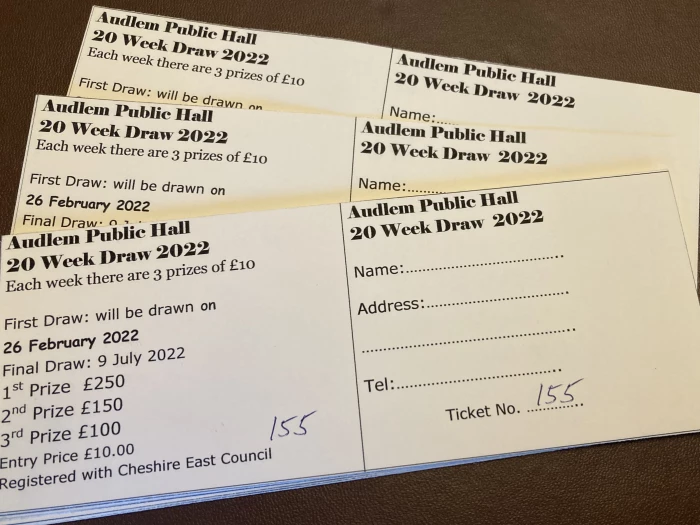 Audlem Public Hall
20 Week Draw 2022
Each week there are 3 prizes of £10
First Draw: will be drawn on
Audlem Public Hall
20 Week Draw 2022
Name:.....
Audlem Public Hall
20 Week Draw 2022
Each week there are 3 prizes of £10
First Draw: will be drawn on
26 February 2022
Final Draw: 9
Audlem Public Hall
20 Week Draw 2022
Name:........
Audlem Public Hall
20 Week Draw 2022
Each week there are 3 prizes of £10
First Draw: will be drawn on
26 February 2022
Final Draw: 9 July 2022
1st Prize £250
2nd Prize £150
3rd Prize £100
155
Entry Price £10.00
Registered with Cheshire East Council
Audlem Public Hall
20 Week Draw 2022
Name:................................
Address:............................
...........................................
Tel:..................................
Ticket No. 155